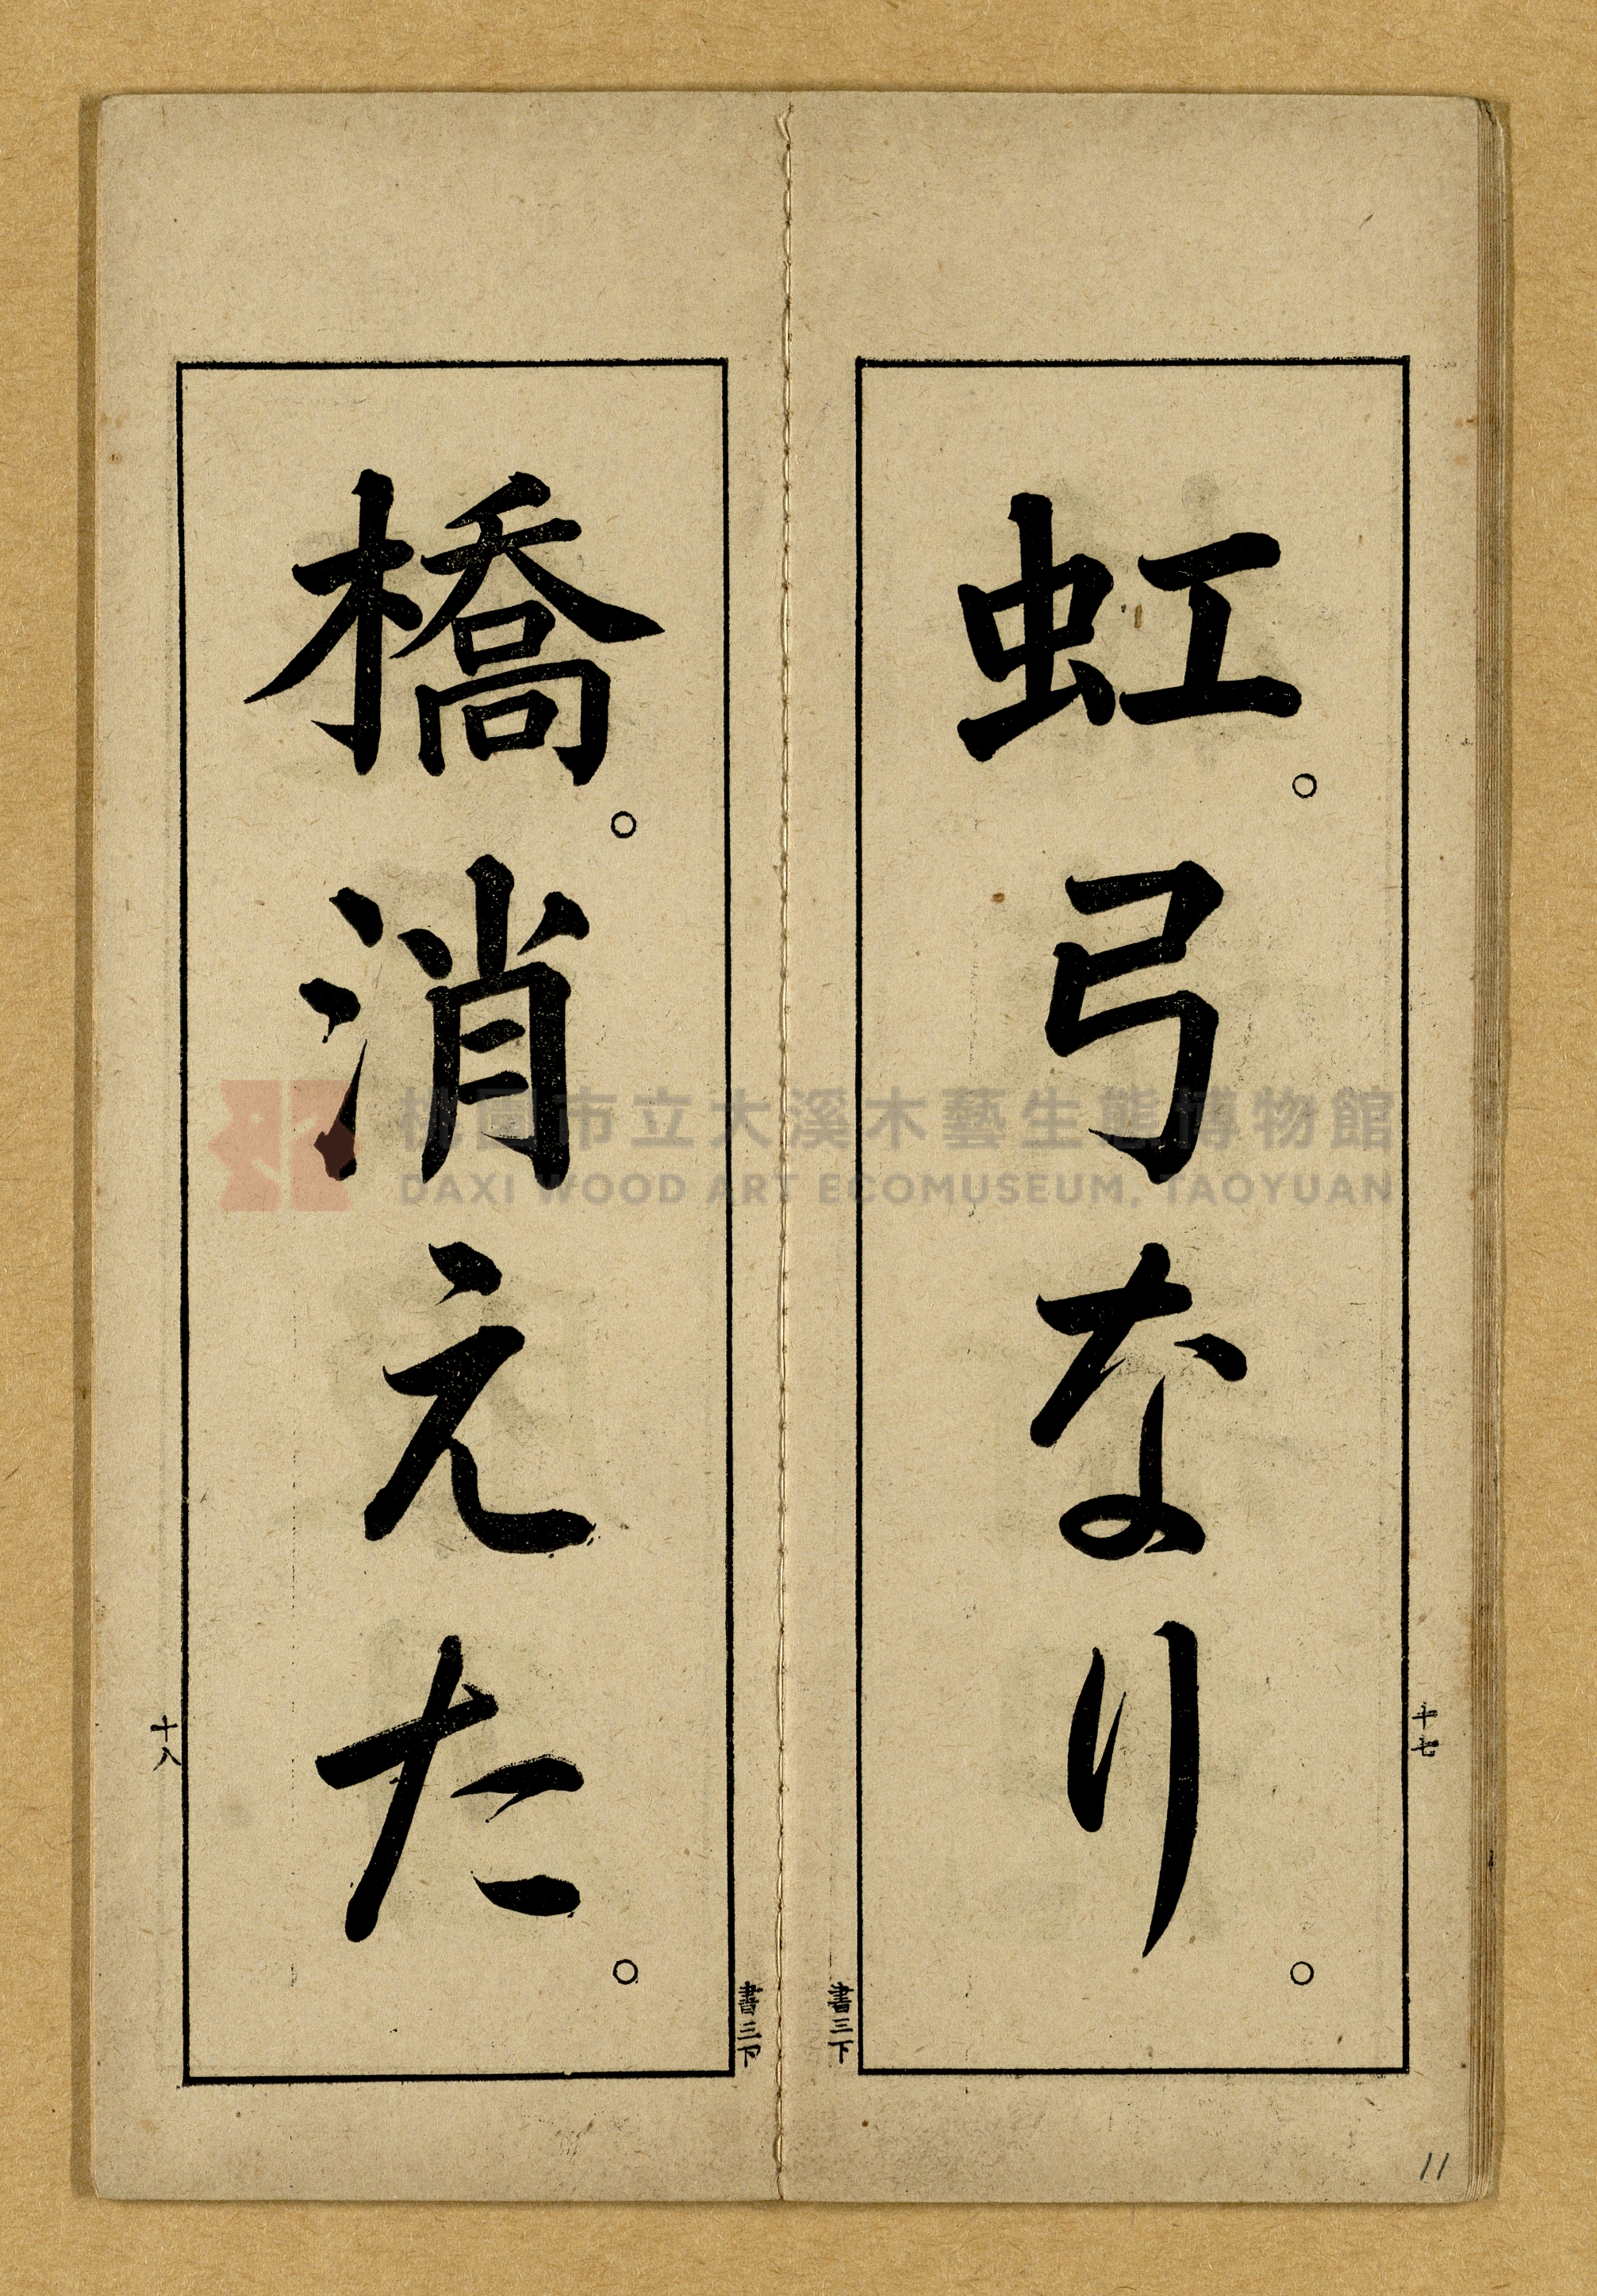 虹。弓なり。
十七
書三下
橋。消えた。
十八
書三下
11
桃園市立大溪木藝生態博物館
DAXI WOOD ART ECOMUSEUM, TAOYUAN